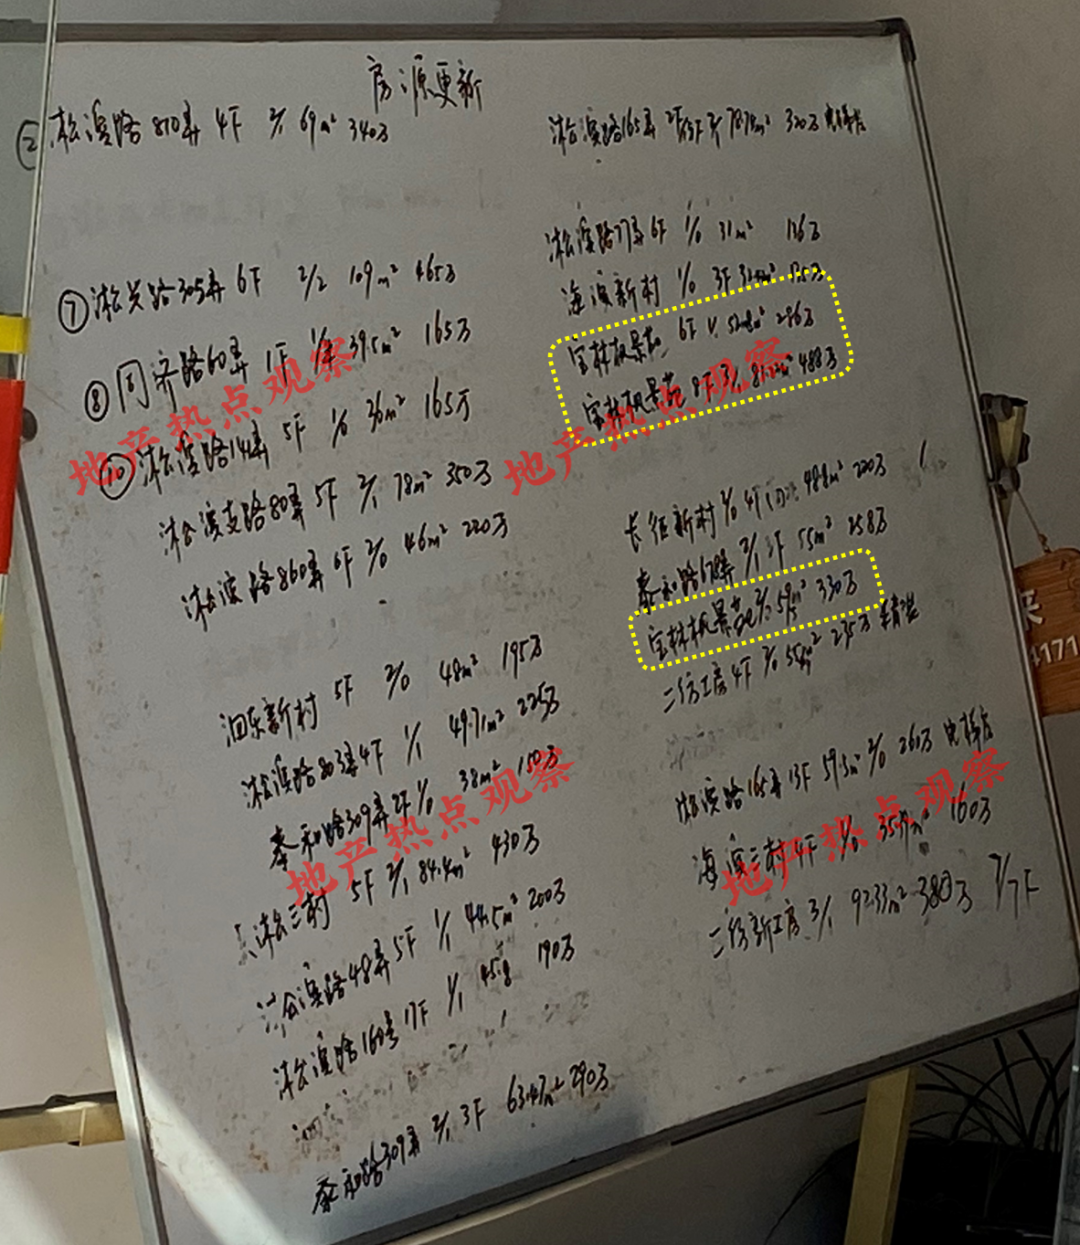 房源更新
② 淞滨路810弄 4F 2/1 69m² 340万
⑦ 淞兴路305弄 6F 2/2 109m² 465万
⑧ 同济路60弄 1F 39.5m² 165万
⑩ 淞滨路141弄 5F 1/0 36m² 165万
淞滨支路80弄 5F 2/1 78m² 350万
淞滨路860弄 6F 2/0 46m² 220万
泗东新村 5F 2/0 48m² 195万
淞滨路803弄 4F 1/1 49.71m² 225万
泰和路309弄 2F 1/0 38m² 150万
淞三村 5F 2/1 84.4m² 430万
淞滨路48弄 5F 1/1 44.5m² 200万
淞滨路160弄 17F 1/1 45.8 190万
泰和路309弄 2/1 3F 63.47m² 290万
淞滨路165弄 2/1 320万 电梯房
淞滨路77弄 6F 1/0 31m² 136万
海滨新村 1/0 3F
宝林枫景苑 6F 1/1 296万
宝林枫景苑 488万
长征新村 2/0 4F 48.8m² 220万
泰和路678弄 2/1 55m² 258万
宝林枫景苑 2/1 59m² 330万
二纺工房 4F 2/0 235万
淞滨路165弄 13F 59.5m² 2/0 260万 电梯房
海滨三村 4F 1/0 160万
二纺新工房 3/1 92.33m² 380万 7/7F
买
4171
地产热点观察
地产热点观察
地产热点观察
地产热点观察